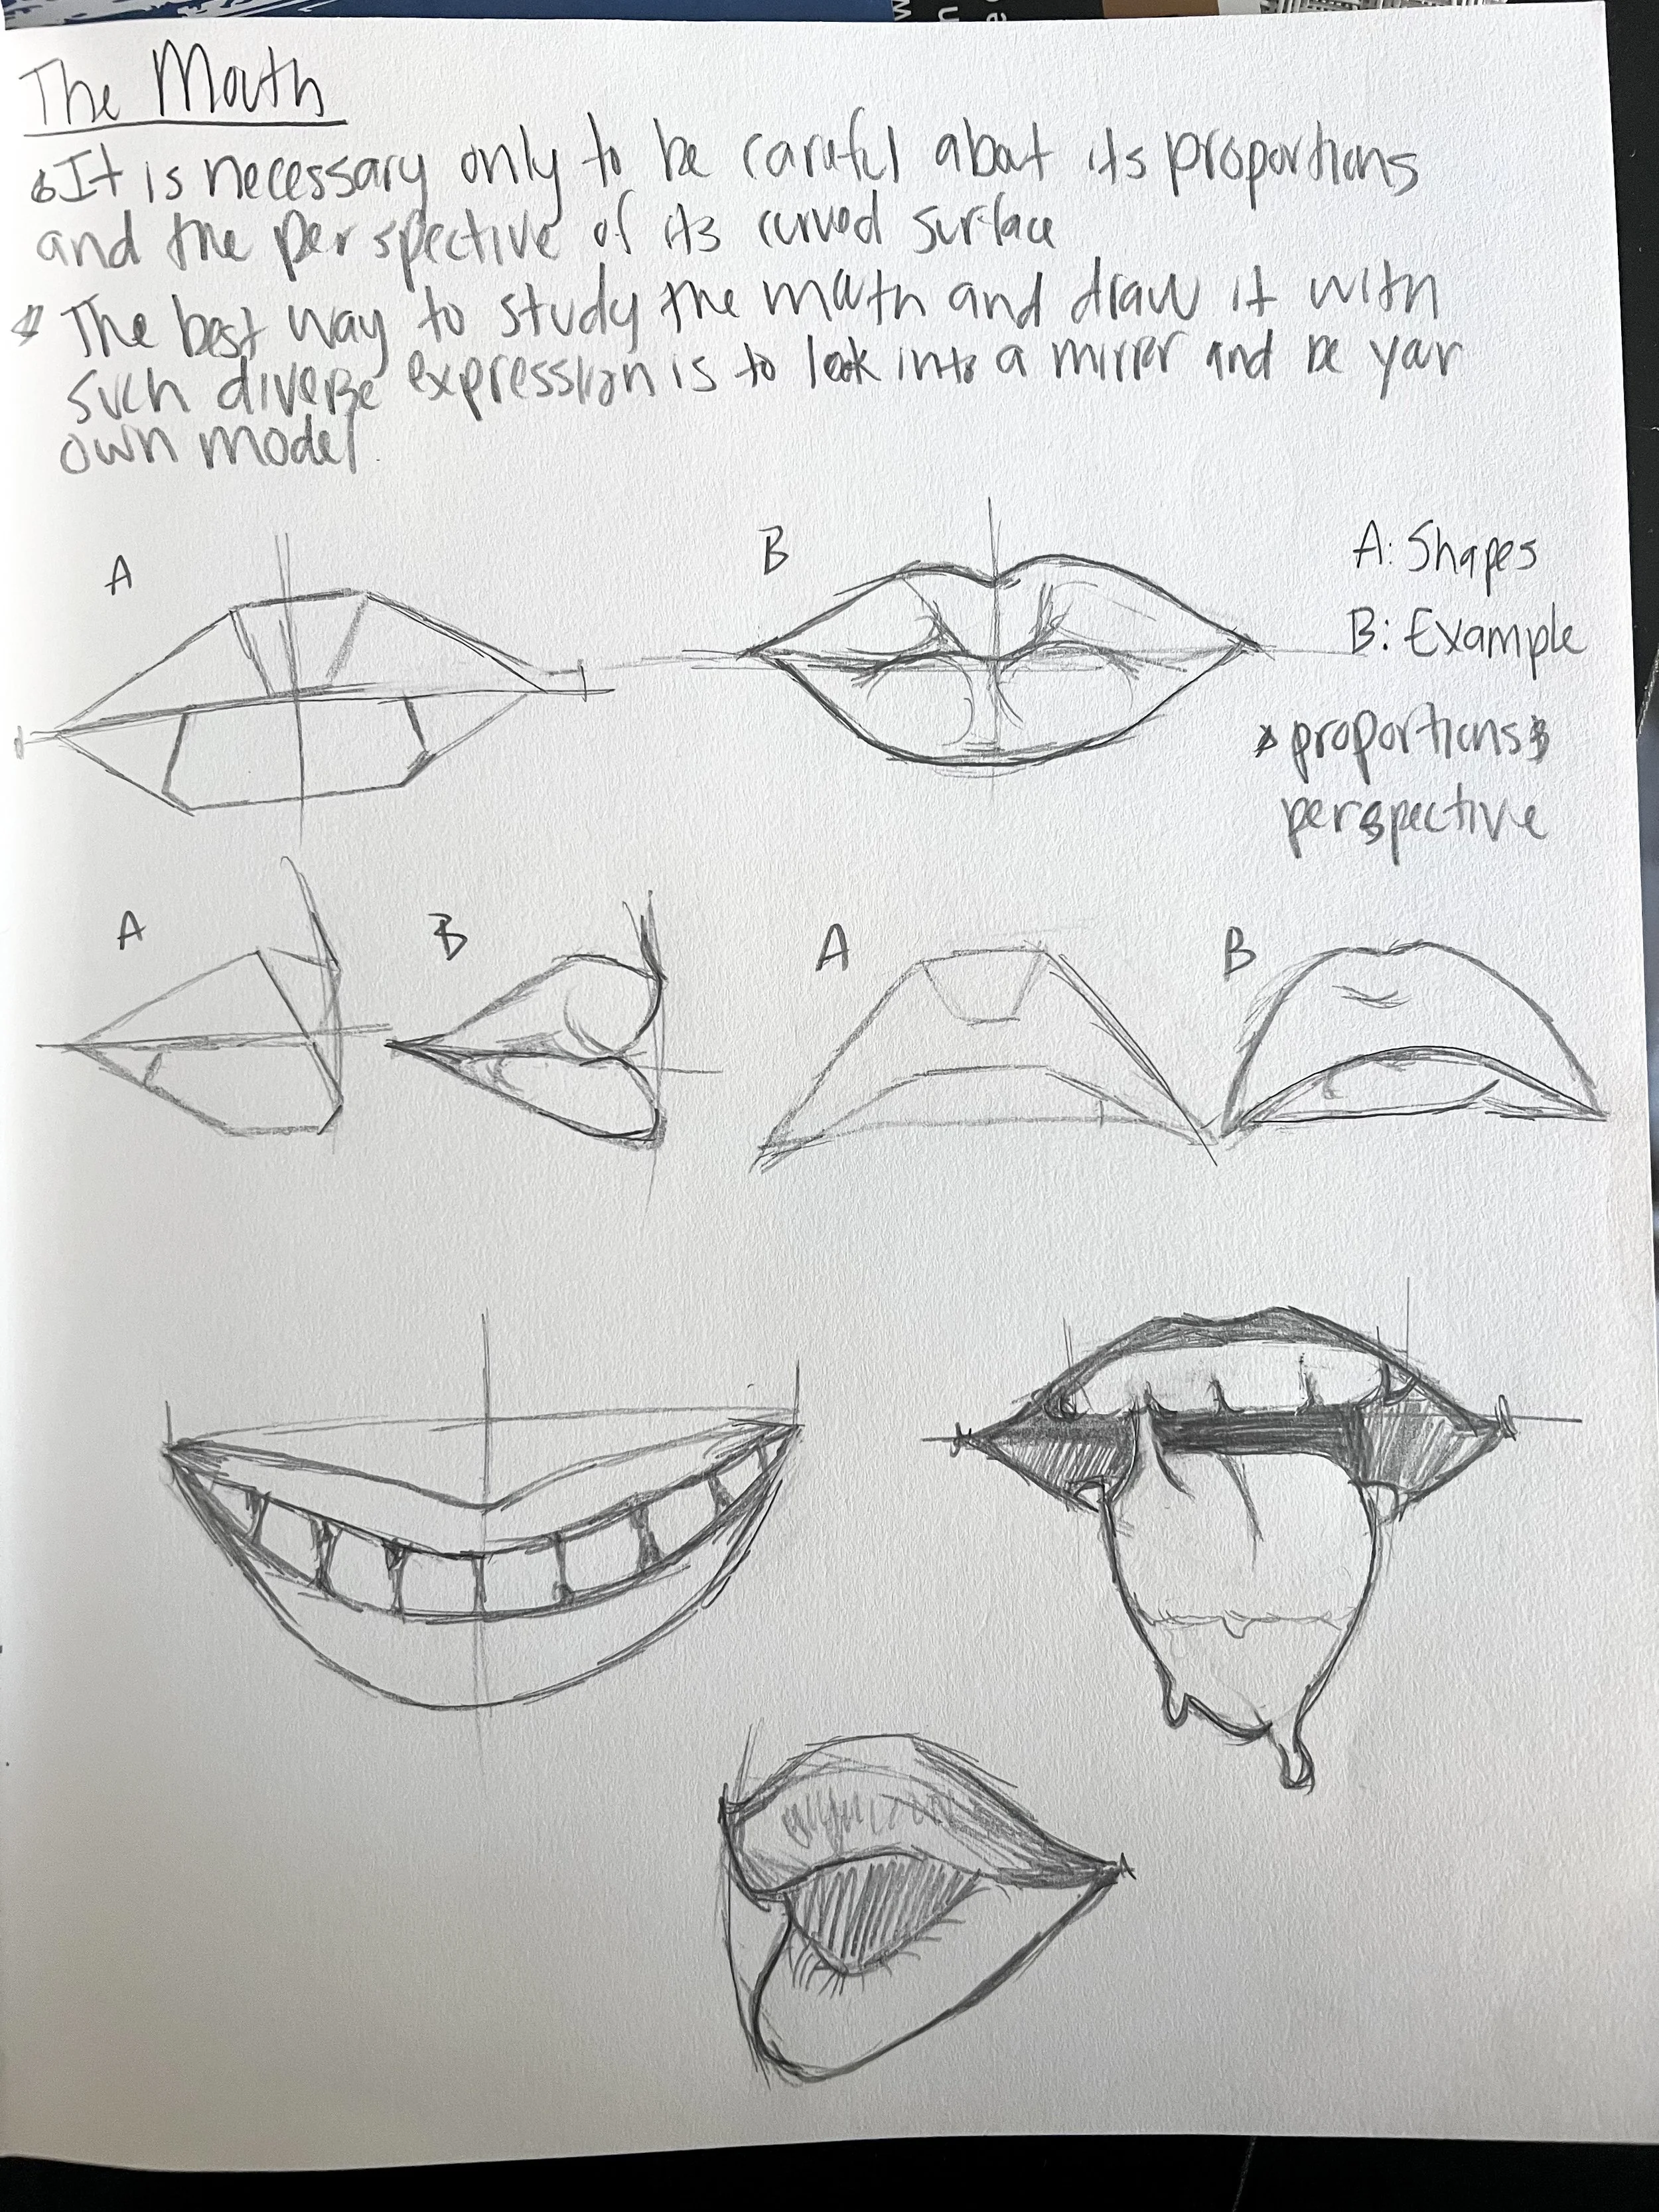 The Mouth
It is necessary only to be careful about its proportions
and the perspective of its curved surface
The best way to study the mouth and draw it with
such diverse expression is to look into a mirror and be your
own model.
A
B
A: Shapes
B: Example
proportions
perspective
A
B
A
B